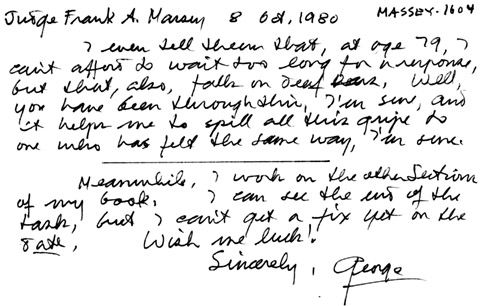 Judge Frank A. Massey 8 Oct, 1980 MASSEY-1604
I even tell them that, at age 79, I
can't afford to wait too long for a response,
but that, also, falls on deaf ears. Well,
you have been through this, I'm sure, and
it helps me to spill all this gripe to
one who has felt the same way, I'm sure.
Meanwhile, I work on the other Sections
of my book. I can see the end of the
task, but I can't get a fix yet on the
date. Wish me luck!
Sincerely, George